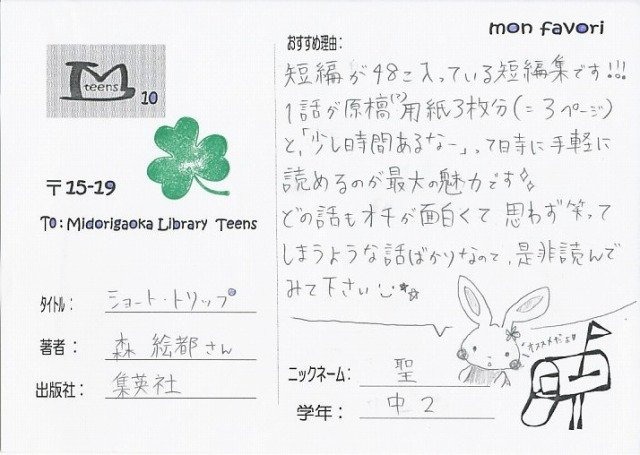 mon favori
teens
10
〒15-19
To: Midorigaoka Library Teens
タイトル: ショート・トリップ
著者: 森 絵都さん
出版社: 集英社
おすすめ理由:
短編が48こ入っている短編集です!!!
1話が原稿(?)用紙3枚分(=3ページ)
と、「少し時間あるなー」って時に手軽に
読めるのが最大の魅力です
どの話もオチが面白くて思わず笑って
しまうような話ばかりなので、是非読んで
みて下さい
オススメだよ!!
ニックネーム: 聖
学年: 中2